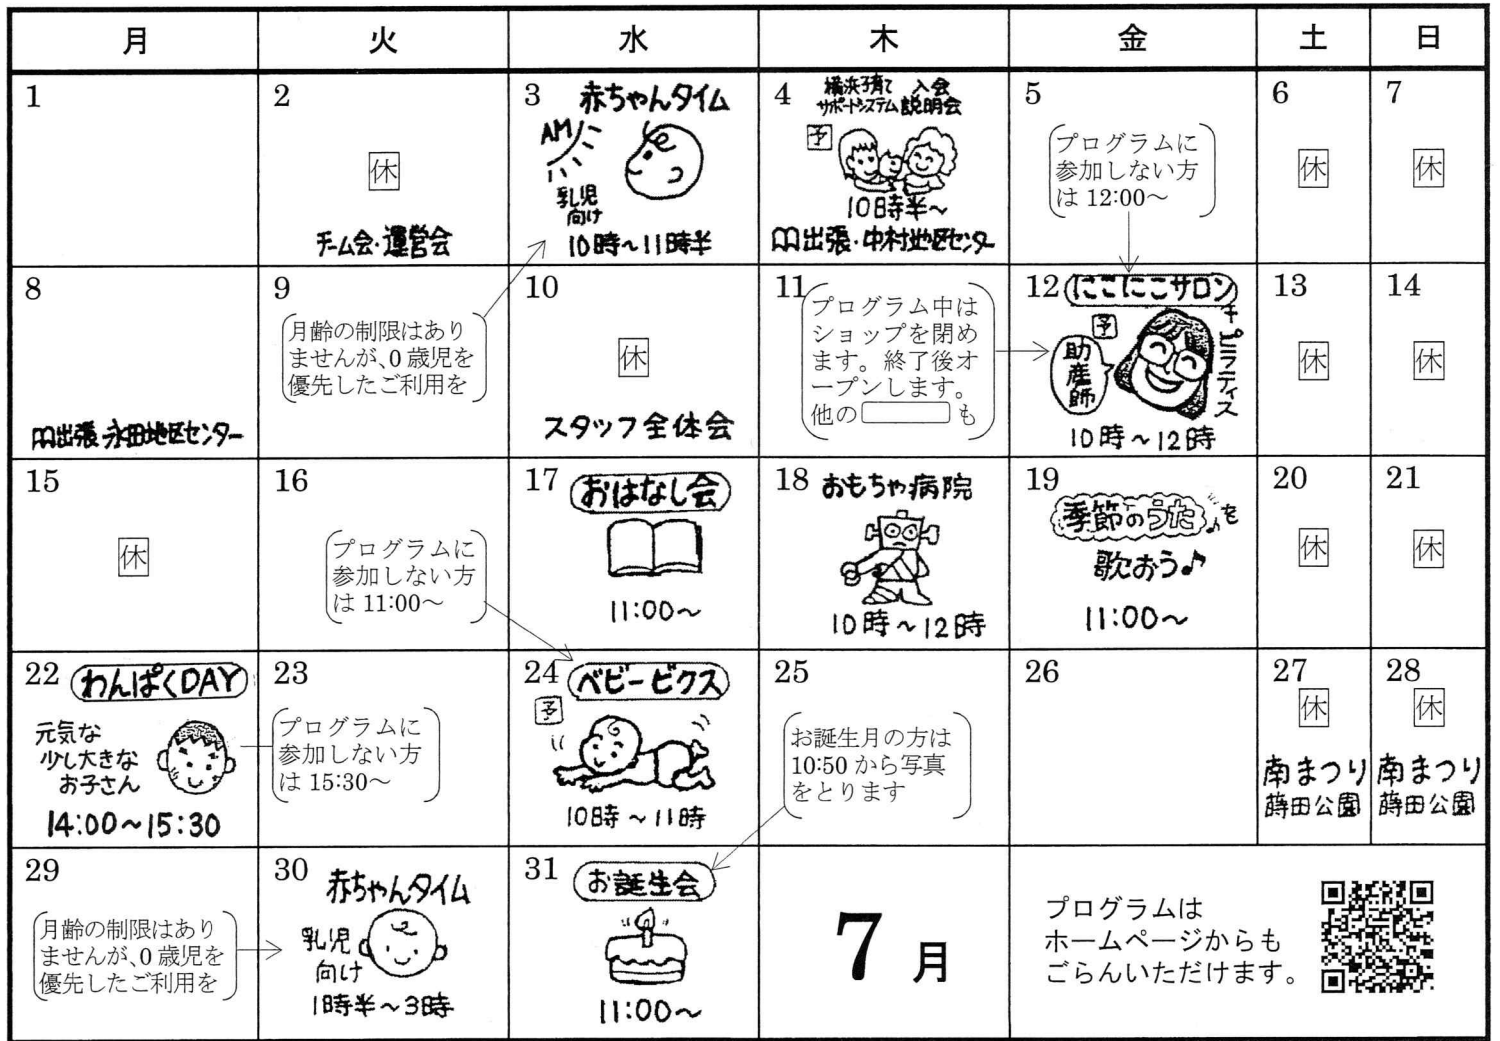 月 火 水 木 金 土 日
1
2
休
チーム会・運営会
3 赤ちゃんタイム
AM
乳児
向け
10時~11時半
4 横浜子育て 入会
サポートシステム 説明会
予
10時半~
出張・中村地区センター
5
プログラムに
参加しない方
は 12:00~
6
休
7
休
8
出張 永田地区センター
9
月齢の制限はあり
ませんが、0 歳児を
優先したご利用を
10
休
スタッフ全体会
11
プログラム中は
ショップを閉め
ます。終了後オ
ープンします。
他の も
12 にこにこサロン
+ピラティス
予
助産師
10時~12時
13
休
14
休
15
休
16
プログラムに
参加しない方
は 11:00~
17 おはなし会
11:00~
18 おもちゃ病院
10時~12時
19
季節のうた♪を
歌おう♪
11:00~
20
休
21
休
22 わんぱくDAY
元気な
少し大きな
お子さん
14:00~15:30
23
プログラムに
参加しない方
は 15:30~
24 ベビービクス
予
10時~11時
25
お誕生月の方は
10:50 から写真
をとります
26
27
休
南まつり
蒔田公園
28
休
南まつり
蒔田公園
29
月齢の制限はあり
ませんが、0 歳児を
優先したご利用を
30
赤ちゃんタイム
乳児
向け
1時半~3時
31 お誕生会
11:00~
7月
プログラムは
ホームページからも
ごらんいただけます。